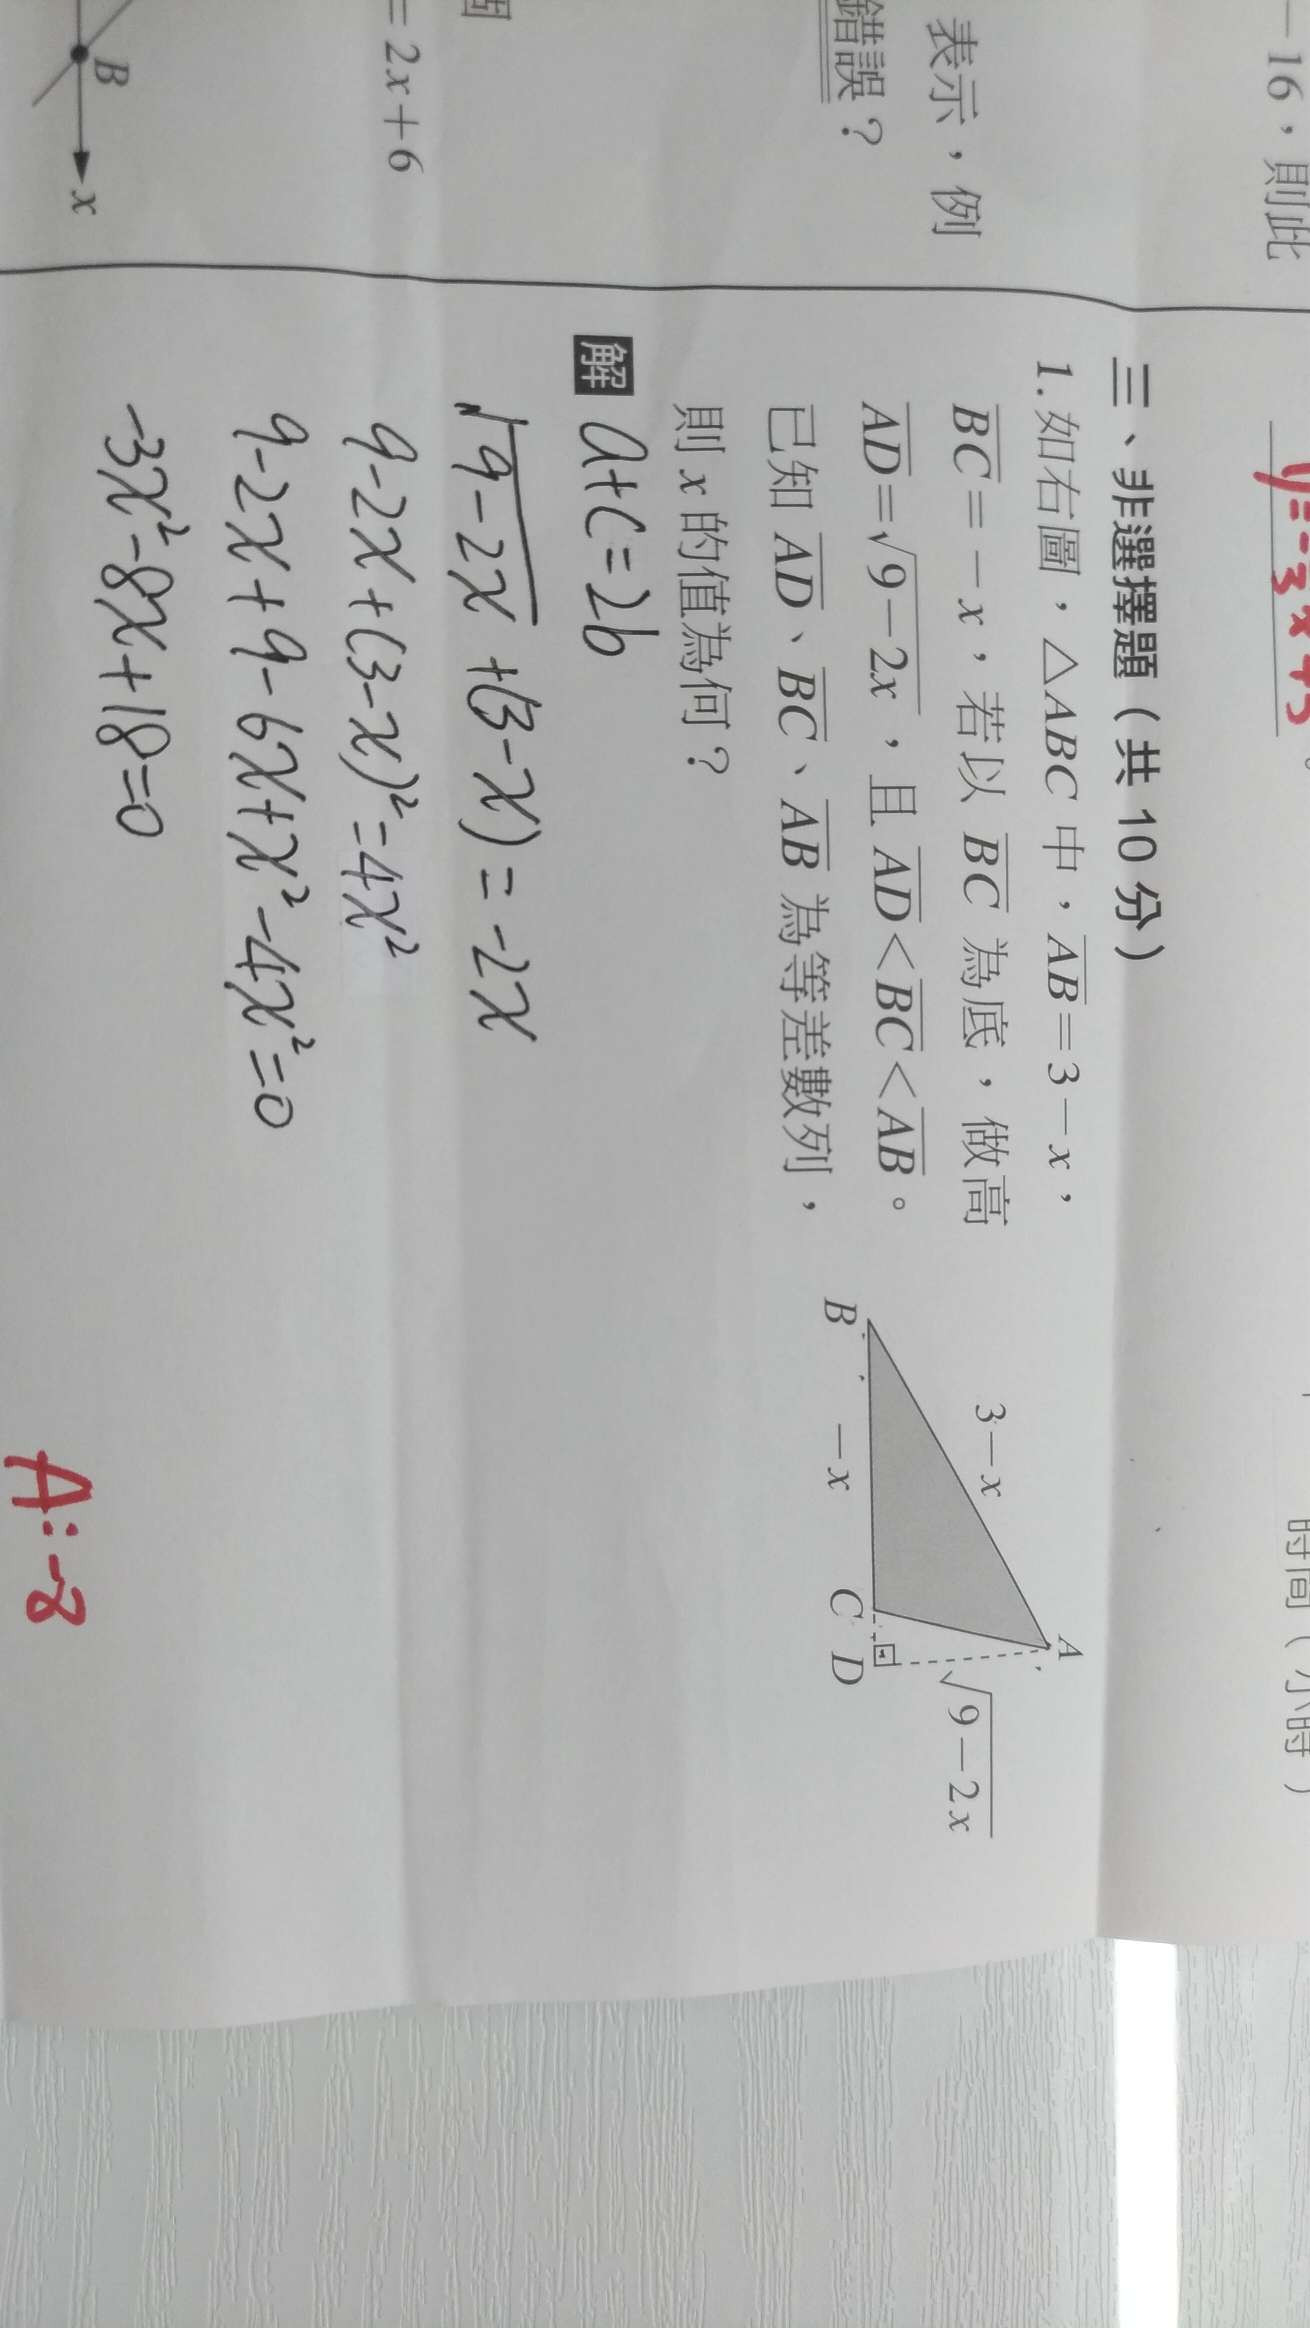 -16，則此
表示，例
錯誤？
=2x+6
B
x
時間(小時)
三、非選擇題(共 10 分)
1. 如右圖，△ABC 中，AB=3-x，
BC=-x，若以 BC 為底，做高
AD=√9-2x，且 AD<BC<AB。
已知 AD、BC、AB 為等差數列，
則 x 的值為何？
A
3-x
√9-2x
B
-x
C
D
解 a+c=2b
√9-2x +(3-x)=-2x
9-2x+(3-x)²=4x²
9-2x+9-6x+x²-4x²=0
-3x²-8x+18=0
A:-8